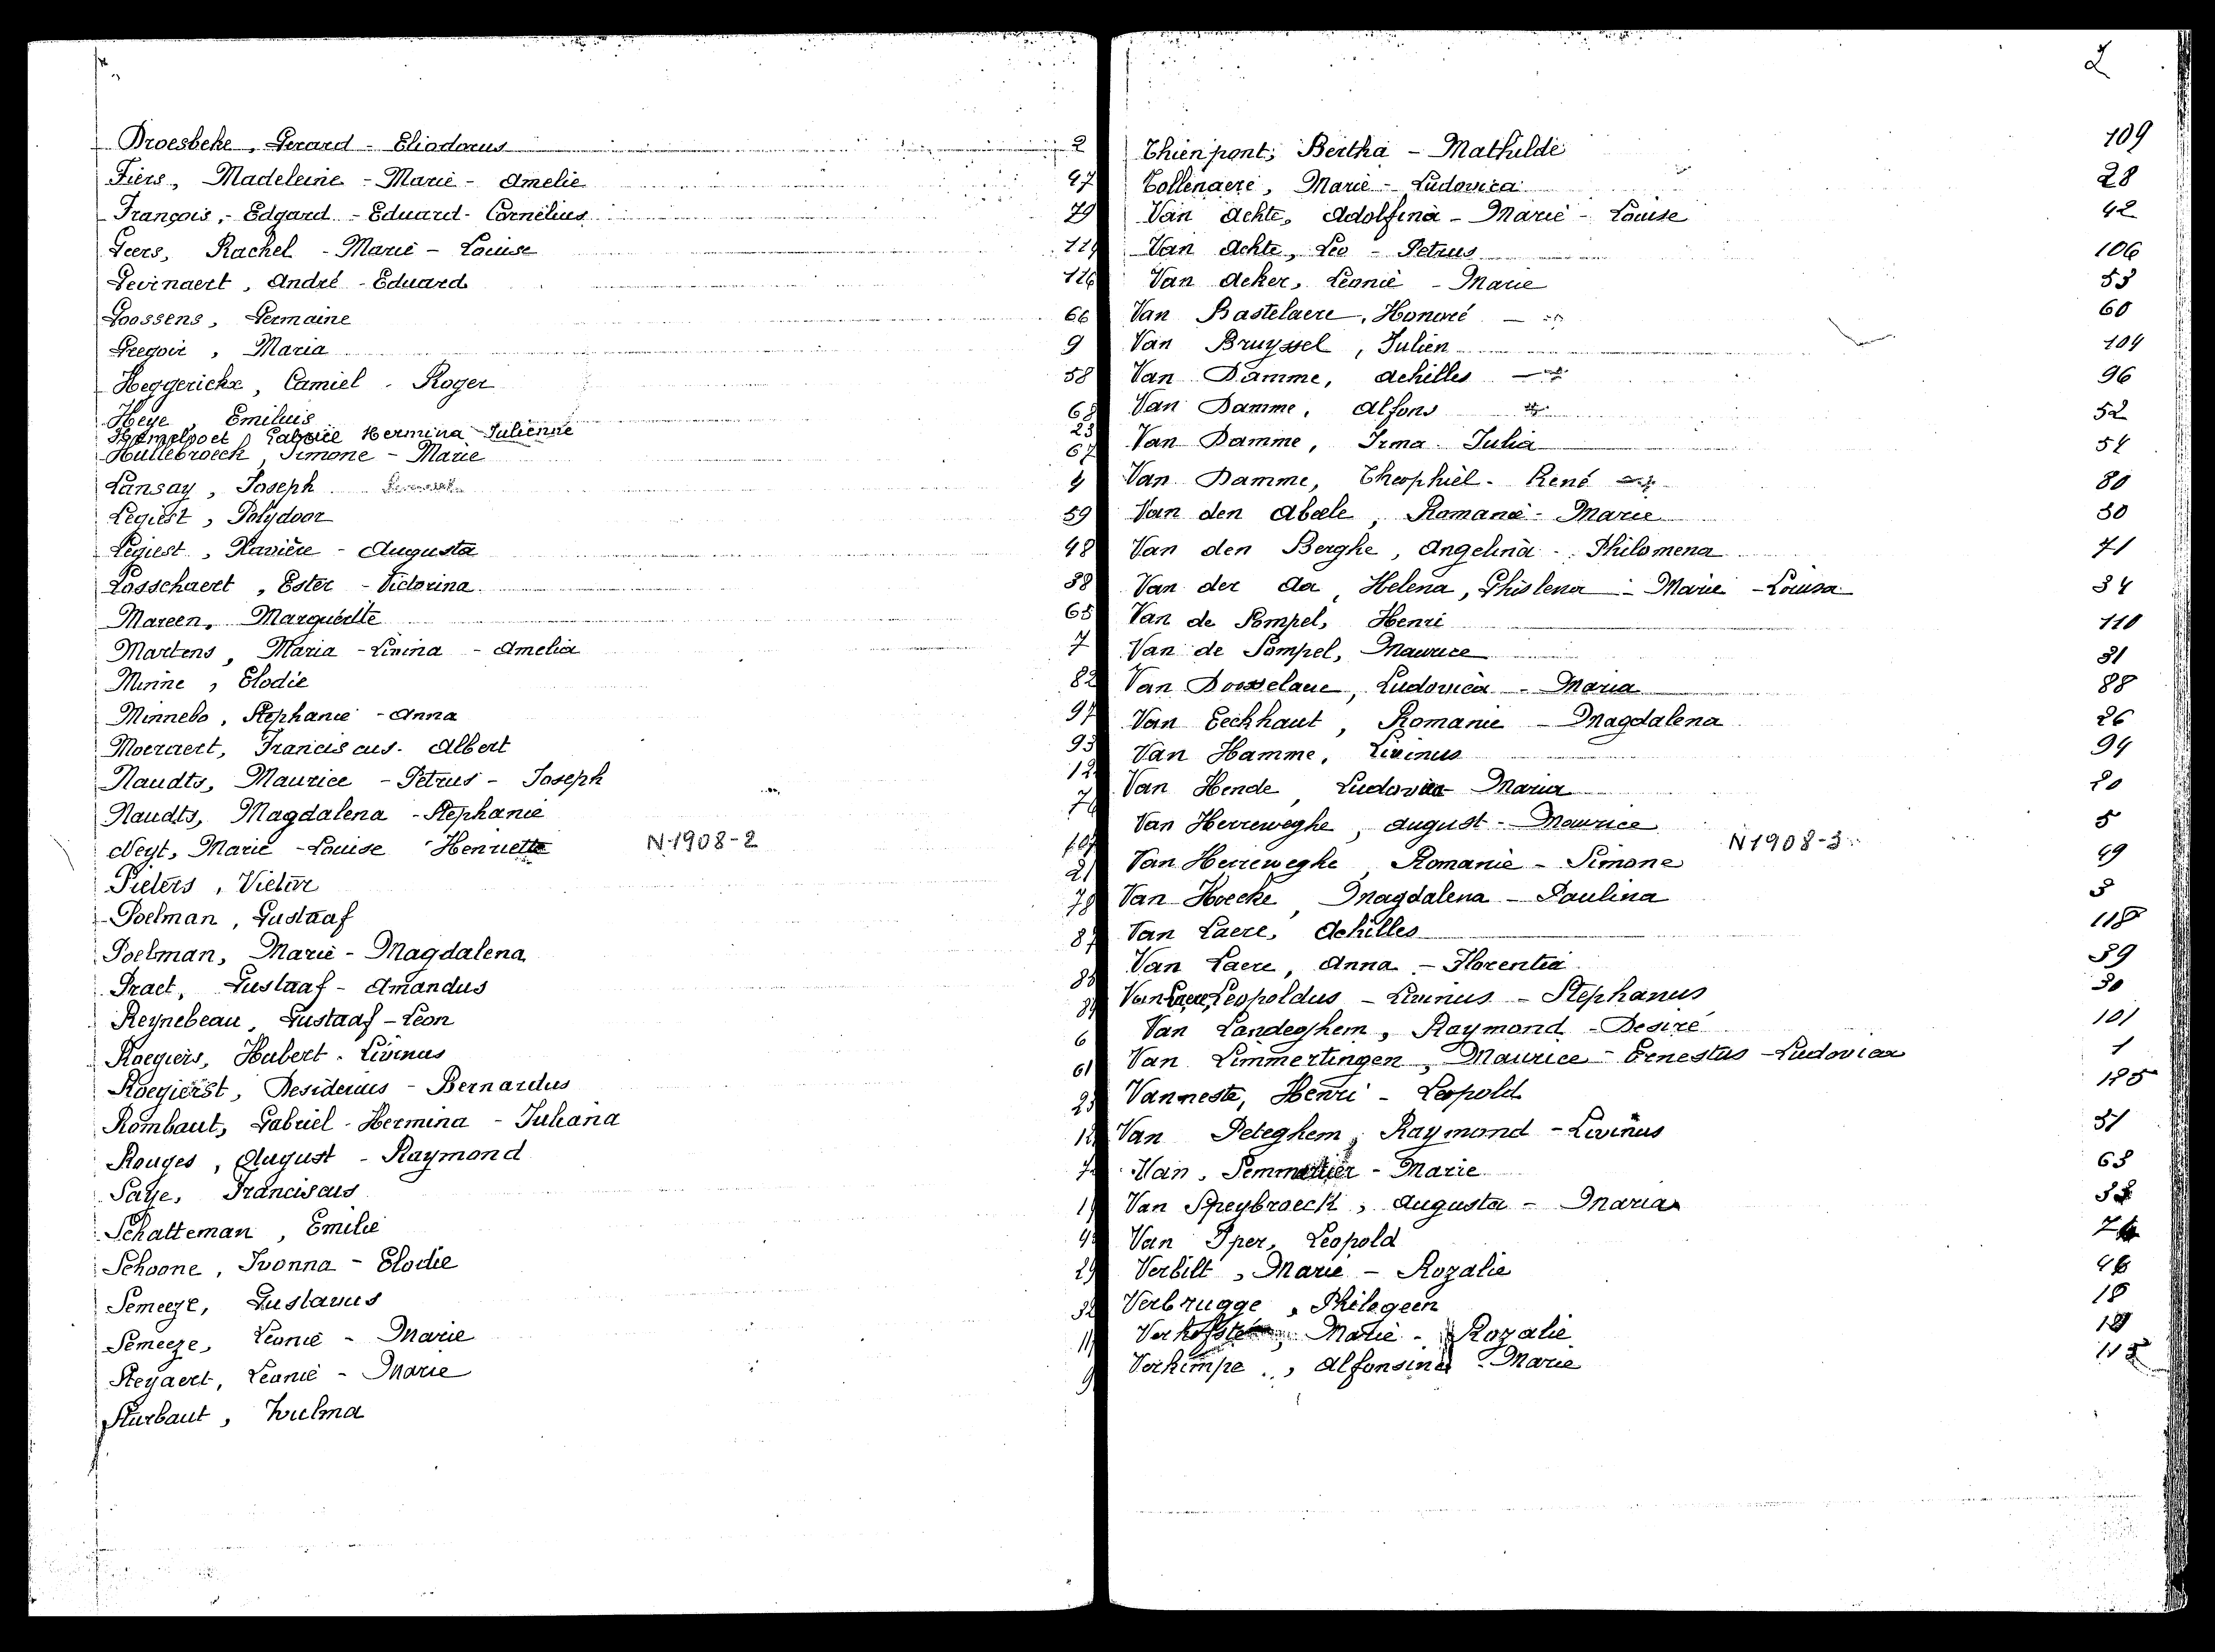 2
Droesbeke, Gerard - Eliodorus 2
Fiers, Madeleine - Marie - Amelie 47
François, - Edgard - Eduard - Cornelius 79
Geers, Rachel - Marie - Louise
Gevinaert, André - Eduard 116
Goossens, Germaine 66
Gregoir, Maria 9
Heggerickx, Camiel - Roger 58
Heye, Emilius 68
Gabriel Hermina Julienne 23
Hullebroeck, Simone - Marie 67
Lansay, Joseph 4
Legiest, Polydoor 59
Legiest, Xavière - Augusta 48
Losschaert, Ester - Victorina 38
Mareen, Marguerite 65
Martens, Maria - Livina - Amelia 7
Minne, Elodie 82
Minnebo, Stephanie - Anna 97
Moeraert, Franciscus - Albert 93
Naudts, Maurice - Petrus - Joseph 12
Naudts, Magdalena - Stephanie
Neyt, Marie - Louise Henriette N-1908-2 107
Pieters, Victor 21
Poelman, Gustaaf 78
Poelman, Marie - Magdalena 87
Praet, Gustaaf - Amandus
Reynebeau, Gustaaf - Leon
Roegiers, Hubert - Livinus 6
Roegierst, Desiderius - Bernardus 61
Rombaut, Gabriel - Hermina - Juliana 23
Rouges, August - Raymond
Saye, Franciscus
Schatteman, Emilie
Schoone, Ivonna - Elodie
Semeeze, Gustavus 29
Semeeze, Leonie - Marie 32
Steyaert, Leonie - Marie
Sturbaut, Zulma
Thienpont, Bertha - Mathilde 109
Tollenaere, Marie - Ludovica 28
Van Achte, Adolfina - Marie - Louise 42
Van Achte, Leo - Petrus 106
Van Acker, Leonie - Marie 53
Van Bastelaere, Honoré 60
Van Bruyssel, Julien 104
Van Damme, Achilles 96
Van Damme, Alfons 52
Van Damme, Irma Julia 54
Van Damme, Theophiel - René 80
Van den Abeele, Romanie - Marie 50
Van den Berghe, Angelina - Philomena 71
Van der Aa, Helena, Ghislena - Marie - Louisa 34
Van de Pompel, Henri 110
Van de Pompel, Maurice 31
Van Dosselaere, Ludovica - Maria 88
Van Eeckhaut, Romanie - Magdalena 26
Van Hamme, Livinus 94
Van Hende, Ludovica Maria 20
Van Herreweghe, August - Maurice 5
N1908-3
Van Herreweghe, Romanie - Simone 49
Van Hoecke, Magdalena - Paulina 3
Van Laere, Achilles 118
Van Laere, Anna - Florentia 39
Van Laere, Leopoldus - Livinus - Stephanus 30
Van Landeghem, Raymond - Desiré 101
Van Limmertingen, Maurice - Ernestus - Ludovica 1
Vanneste, Henri - Leopold 125
Van Peteghem, Raymond - Livinus 51
Van - Marie 63
Van Speybroeck, Augusta - Maria
Van Iper, Leopold
Verbilt, Marie - Rozalie
Verbrugge, Philegeen
Marie - Rozalie
Verhimpe, Alfonsina - Marie